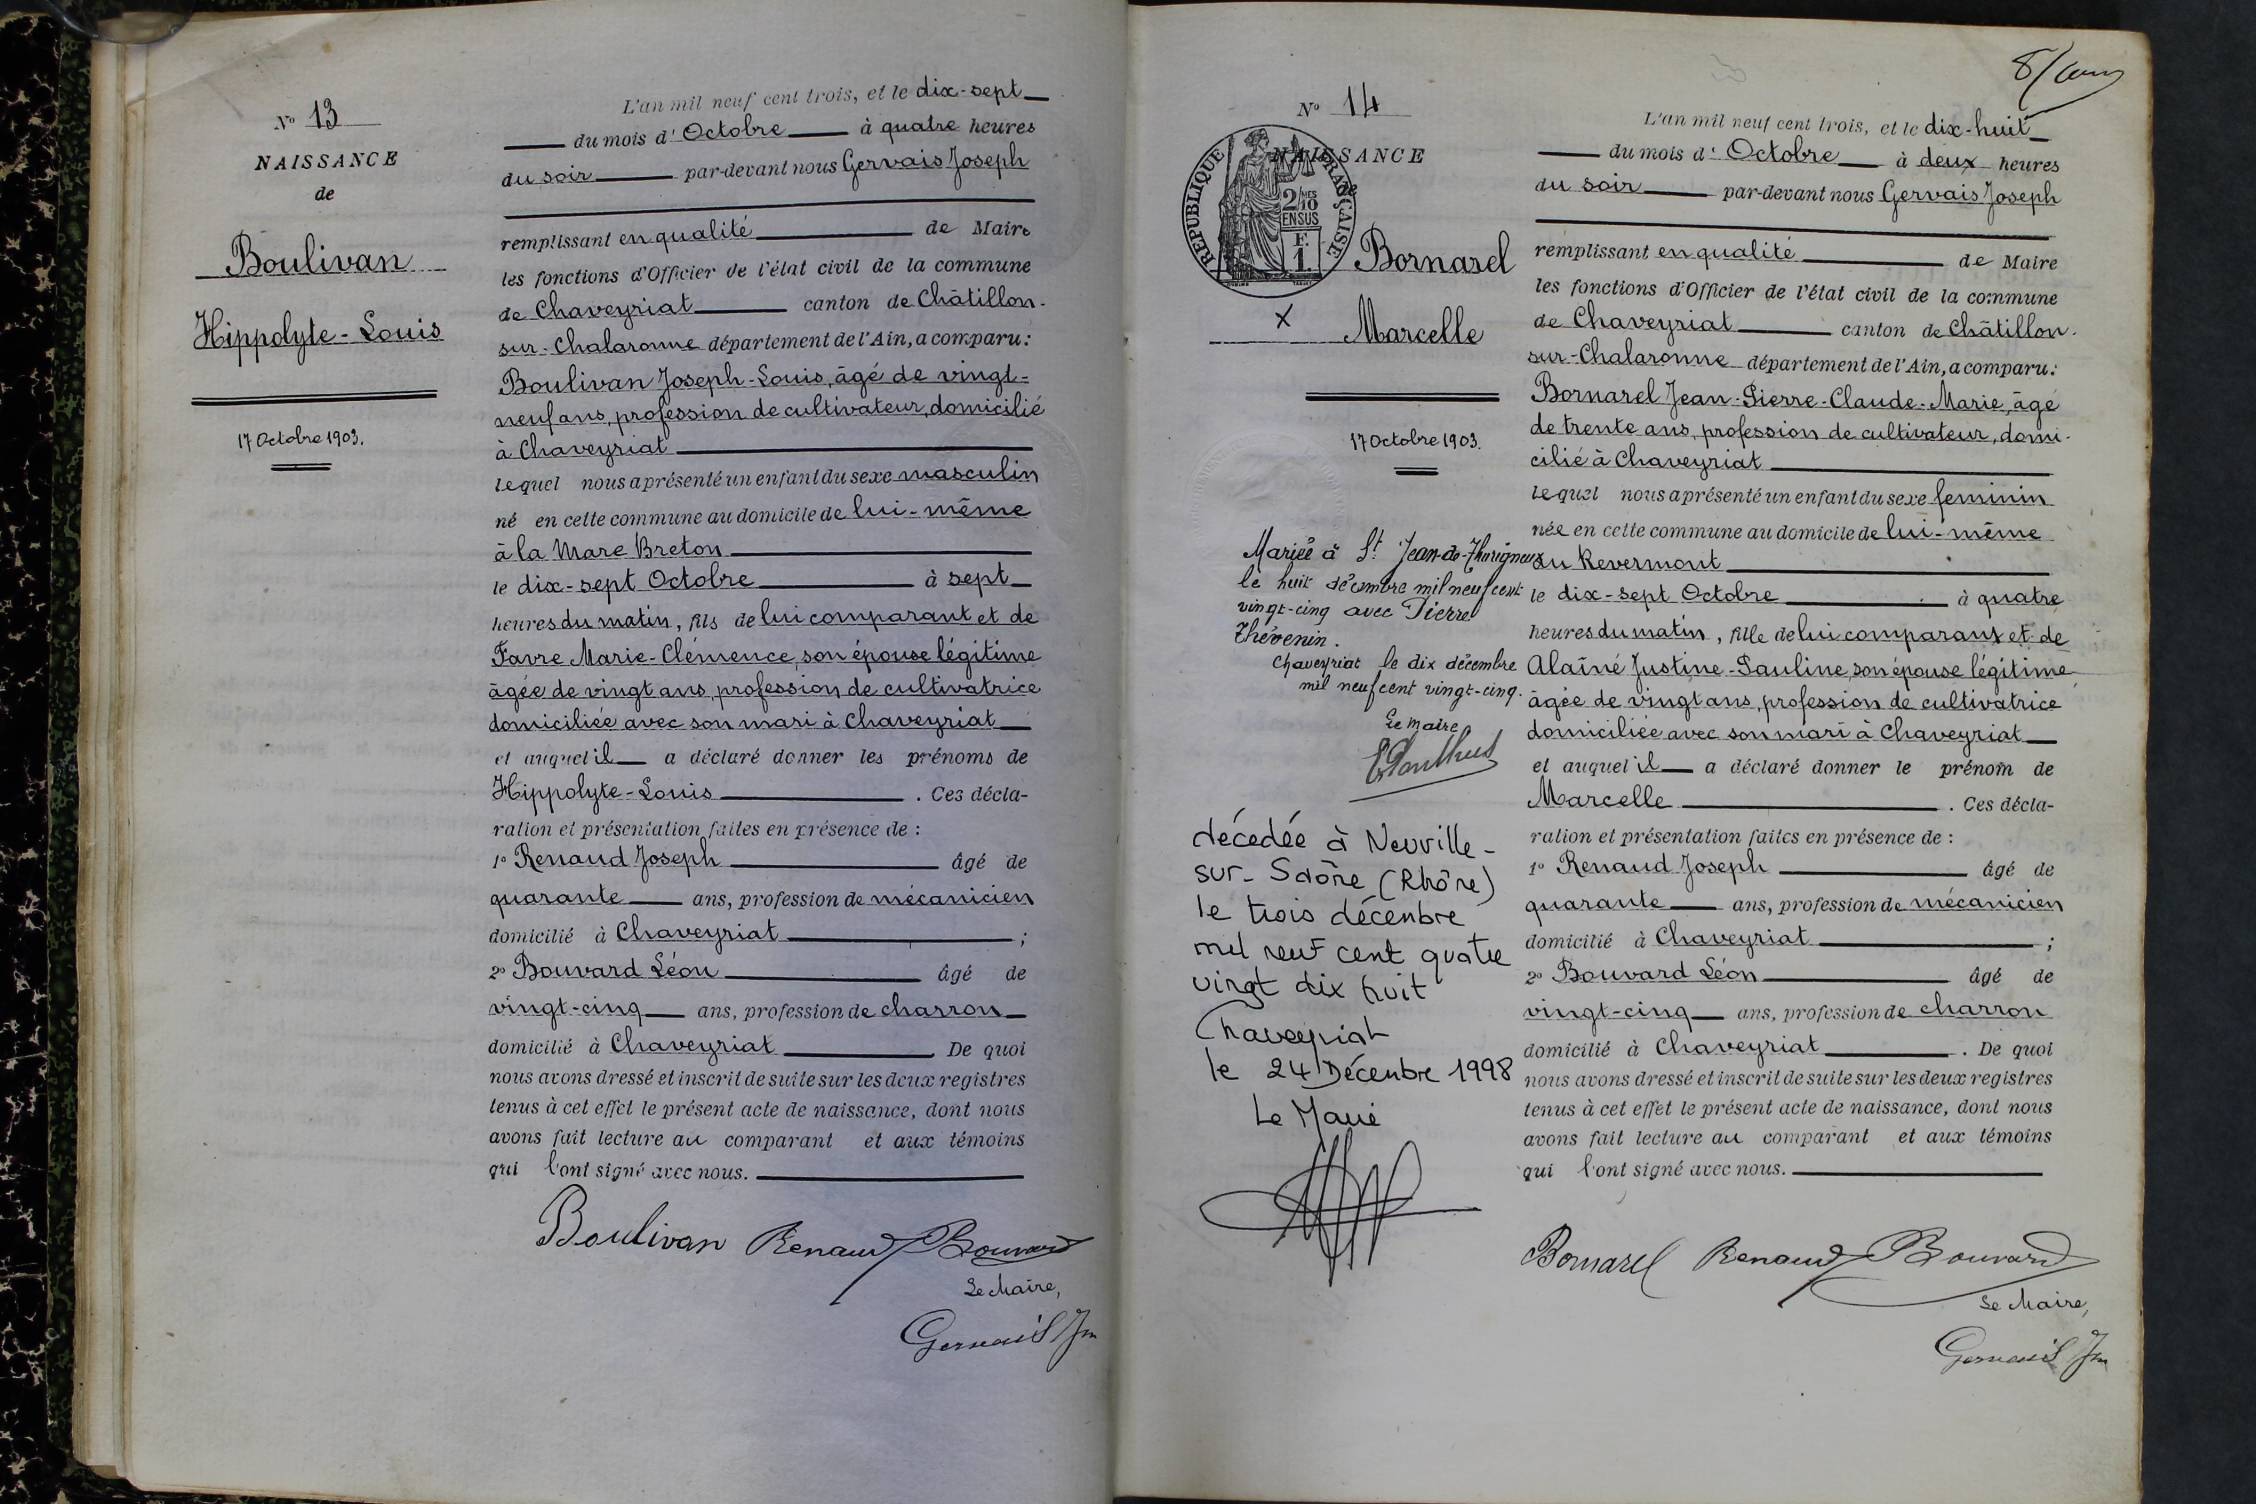 N° 13
NAISSANCE
de
Boulivan
Hippolyte-Louis
17 Octobre 1903.
L'an mil neuf cent trois, et le dix-sept
du mois d'Octobre à quatre heures
du soir par-devant nous Gervais Joseph
remplissant en qualité de Maire
les fonctions d'Officier de l'état civil de la commune
de Chaveyriat canton de Châtillon-
sur-Chalaronne département de l'Ain, a comparu:
Boulivan Joseph-Louis, âgé de vingt-
neuf ans, profession de cultivateur, domicilié
à Chaveyriat
lequel nous a présenté un enfant du sexe masculin
né en cette commune au domicile de lui-même
à la Mare Breton
le dix-sept Octobre à sept
heures du matin, fils de lui comparant et de
Favre Marie-Clémence, son épouse légitime
âgée de vingt ans, profession de cultivatrice
domiciliée avec son mari à Chaveyriat
et auquel il a déclaré donner les prénoms de
Hippolyte-Louis . Ces décla-
ration et présentation faites en présence de :
1° Renaud Joseph âgé de
quarante ans, profession de mécanicien
domicilié à Chaveyriat ;
2° Bouvard Léon âgé de
vingt-cinq ans, profession de charron
domicilié à Chaveyriat . De quoi
nous avons dressé et inscrit de suite sur les deux registres
tenus à cet effet le présent acte de naissance, dont nous
avons fait lecture au comparant et aux témoins
qui l'ont signé avec nous.
Boulivan Renaud Bouvard
Le Maire,
Gervais Jh
N° 14
NAISSANCE
de
RÉPUBLIQUE FRANÇAISE
2/10 MES
EN SUS
F.
1.
Bornarel
Marcelle
17 Octobre 1903.
Mariée à St Jean-de-Thurigneux
le huit décembre mil neuf cent
vingt-cinq avec Pierre
Thévenin.
Chaveyriat le dix décembre
mil neuf cent vingt-cinq.
Le Maire
décédée à Neuville-
sur-Saône (Rhône)
le trois décembre
mil neuf cent quatre
vingt dix huit
Chaveyriat
le 24 Décembre 1998
Le Maire
8/
L'an mil neuf cent trois, et le dix-huit
du mois d'Octobre à deux heures
du soir par-devant nous Gervais Joseph
remplissant en qualité de Maire
les fonctions d'Officier de l'état civil de la commune
de Chaveyriat canton de Châtillon-
sur-Chalaronne département de l'Ain, a comparu:
Bornarel Jean-Pierre-Claude-Marie, âgé
de trente ans, profession de cultivateur, domi-
cilié à Chaveyriat
lequel nous a présenté un enfant du sexe feminin
née en cette commune au domicile de lui-même
au Revermont
le dix-sept Octobre à quatre
heures du matin, fille de lui comparant et de
Alaîné Justine-Pauline, son épouse légitime
âgée de vingt ans, profession de cultivatrice
domiciliée avec son mari à Chaveyriat
et auquel il a déclaré donner le prénom de
Marcelle . Ces décla-
ration et présentation faites en présence de :
1° Renaud Joseph âgé de
quarante ans, profession de mécanicien
domicilié à Chaveyriat ;
2° Bouvard Léon âgé de
vingt-cinq ans, profession de charron
domicilié à Chaveyriat . De quoi
nous avons dressé et inscrit de suite sur les deux registres
tenus à cet effet le présent acte de naissance, dont nous
avons fait lecture au comparant et aux témoins
qui l'ont signé avec nous.
Bornarel Renaud Bouvard
Le Maire,
Gervais Jh